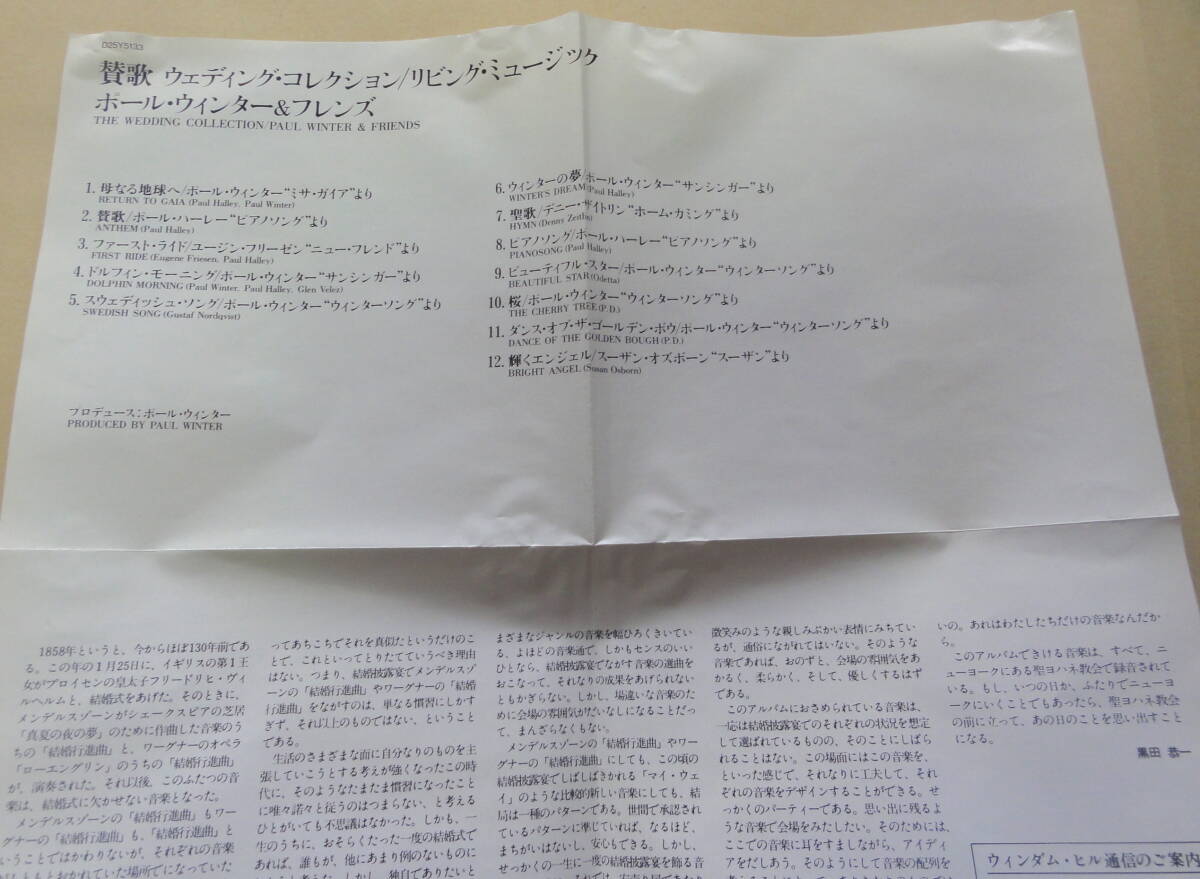 D25Y5133
賛歌 ウェディング・コレクション/リビング・ミュージック
ポール・ウィンター&フレンズ
THE WEDDING COLLECTION/PAUL WINTER & FRIENDS
1. 母なる地球へ/ポール・ウィンター“ミサ・ガイア”より
RETURN TO GAIA (Paul Halley, Paul Winter)
2. 賛歌/ポール・ハーレー“ピアノソング”より
ANTHEM (Paul Halley)
3. ファースト・ライド/ユージン・フリーゼン“ニュー・フレンド”より
FIRST RIDE (Eugene Friesen, Paul Halley)
4. ドルフィン・モーニング/ポール・ウィンター“サンシンガー”より
DOLPHIN MORNING (Paul Winter, Paul Halley, Glen Velez)
5. スウェディッシュ・ソング/ポール・ウィンター“ウィンターソング”より
SWEDISH SONG (Gustaf Nordqvist)
プロデュース:ポール・ウィンター
PRODUCED BY PAUL WINTER
6. ウィンターの夢/ポール・ウィンター“サンシンガー”より
WINTER'S DREAM (Paul Halley)
7. 聖歌/デニー・ザイトリン“ホーム・カミング”より
HYMN (Denny Zeitlin)
8. ピアノソング/ポール・ハーレー“ピアノソング”より
PIANOSONG (Paul Halley)
9. ビューティフル・スター/ポール・ウィンター“ウィンターソング”より
BEAUTIFUL STAR (Odetta)
10. 桜/ポール・ウィンター“ウィンターソング”より
THE CHERRY TREE (P.D.)
11. ダンス・オブ・ザ・ゴールデン・ボウ/ポール・ウィンター“ウィンターソング”より
DANCE OF THE GOLDEN BOUGH (P.D.)
12. 輝くエンジェル/スーザン・オズボーン“スーザン”より
BRIGHT ANGEL (Susan Osborn)
1858年というと、今からほぼ130年前であ
る。この年の1月25日に、イギリスの第1王
女がプロイセンの皇太子フリードリヒ・ヴィ
ルヘルムと、結婚式をあげた。そのときに、
メンデルスゾーンがシェークスピアの芝居
「真夏の夜の夢」のために作曲した音楽のう
ちの「結婚行進曲」と、ワーグナーのオペラ
「ローエングリン」のうちの「結婚行進曲」
が、演奏された。それ以後、このふたつの音
楽は、結婚式に欠かせない音楽となった。
メンデルスゾーンの「結婚行進曲」もワー
グナーの「結婚行進曲」も、「結婚行進曲」と
いうことではかわりないが、それぞれの音楽
がもともとおかれていた場所でになっていた
ってあちこちでそれを真似たというだけのこ
とで、これといってとりたてていうべき理由
はない。つまり、結婚披露宴でメンデルスゾ
ーンの「結婚行進曲」やワーグナーの「結婚
行進曲」をながすのは、単なる習慣にしかす
ぎず、それ以上のものではない、ということ
である。
生活のさまざまな面に自分なりのものを主
張していこうとする考えが強くなったこの時
代に、そのようなたまたま習慣になったこと
に唯々諾々と従うのはつまらない、と考える
ひとがいても不思議はなかった。しかも、一
生のうちに、おそらくたった一度の結婚式で
あれば、誰もが、他にあまり例のないものに
したいと考える。しかし、独自でありたいと
まざまなジャンルの音楽を幅ひろくきいてい
る、よほどの音楽通で、しかもセンスのいい
ひとなら、結婚披露宴でながす音楽の選曲を
おこなって、それなりの成果をあげられない
ともかぎらない。しかし、場違いな音楽のた
めに会場の雰囲気がだいなしになることだっ
て、まんざらなくもない。
メンデルスゾーンの「結婚行進曲」やワー
グナーの「結婚行進曲」にしても、この頃の
結婚披露宴でしばしばきかれる「マイ・ウェ
イ」のような比較的新しい音楽にしても、結
局は一種のパターンである。世間で承認され
ているパターンに準じていれば、なるほど、
まちがいはないし、安心もできる。しかし、
せっかくの一生に一度の結婚披露宴を飾る音
微笑みのような親しみぶかい表情にみちてい
るが、通俗にながれてはいない。そのような
音楽であれば、おのずと、会場の雰囲気をあ
かるく、柔らかく、そして、優しくするはず
である。
このアルバムにおさめられている音楽は、
一応は結婚披露宴でのそれぞれの状況を想定
して選ばれているものの、そのことにしばら
れることはない。この場面にはこの音楽を、
といった感じで、それなりに工夫して、それ
ぞれの音楽をデザインすることができる。せ
っかくのパーティーである。思い出に残るよ
うな音楽で会場をみたしたい。そのためには、
ここでの音楽に耳をすましながら、アイディ
アをだしあう。そのようにして音楽の配列を
いの。あれはわたしたちだけの音楽なんだか
ら。
このアルバムできける音楽は、すべて、ニ
ューヨークにある聖ヨハネ教会で録音されて
いる。もし、いつの日か、ふたりでニューヨ
ークにいくことでもあったら、聖ヨハネ教会
の前に立って、あの日のことを思い出すこと
になる。
黒田 恭一
ウィンダム・ヒル通信のご案内